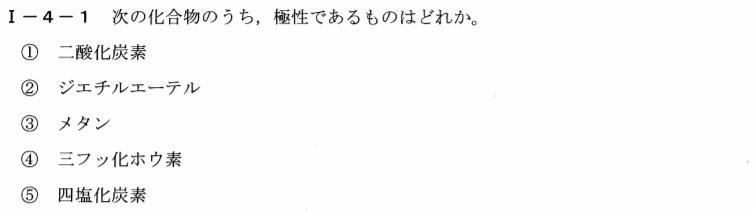 Ⅰ－４－１　次の化合物のうち，極性であるものはどれか。
①　二酸化炭素
②　ジエチルエーテル
③　メタン
④　三フッ化ホウ素
⑤　四塩化炭素